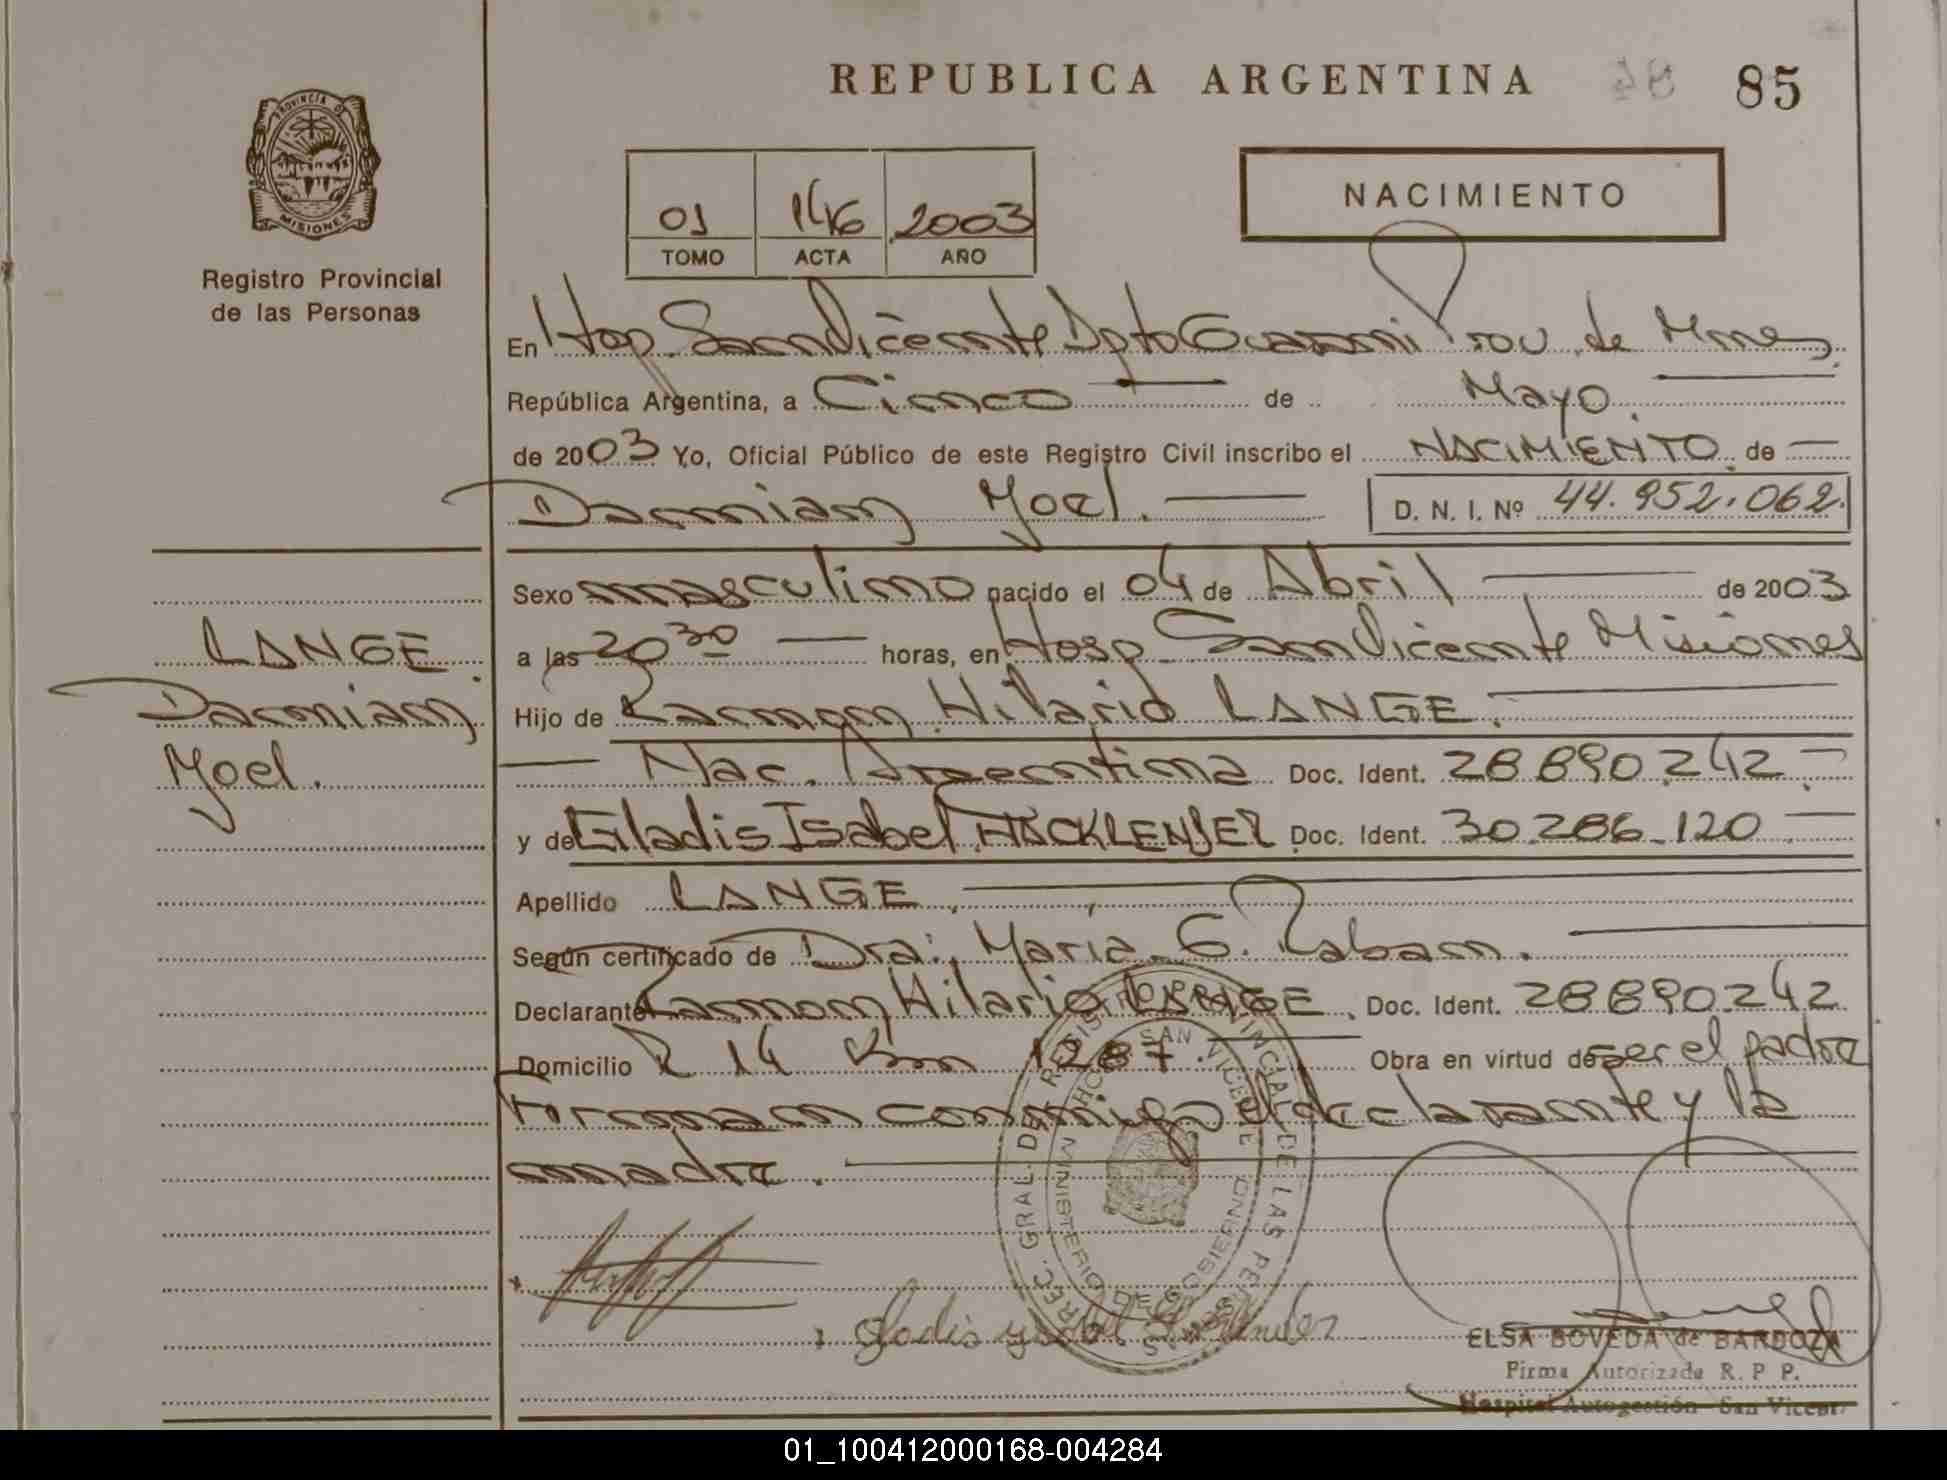 REPUBLICA ARGENTINA 85
PROVINCIA DE
MISIONES
Registro Provincial
de las Personas
01 146 2003
TOMO ACTA AÑO
NACIMIENTO
En Hosp. San Vicente Dpto Guarani Prov. de Mnes
República Argentina, a Cinco de Mayo
de 2003 Yo, Oficial Público de este Registro Civil inscribo el NACIMIENTO de
Damian Yoel. D. N. I. Nº 44.952.062.
Sexo masculino nacido el 04 de Abril de 2003
a las 20 30 horas, en Hosp San Vicente Misiones
Hijo de Ramon Hilario LANGE.
Nac. Argentina Doc. Ident. 28.890.242
y de Gladis Isabel Doc. Ident. 30.286.120
Apellido LANGE
Según certificado de Dra: Maria G. Raban.
Declarante Ramon Hilario LANGE. Doc. Ident. 28.890.242
Domicilio R 14 Km 1287. Obra en virtud de ser el padre
Firman conmigo el declarante y la
madre.
LANGE
Damian
Yoel.
DIREC. GRAL. DEL REGISTRO PROVINCIAL DE LAS PERSONAS
SAN VICENTE
MINISTERIO DE GOBIERNO
Gladis ysabel
ELSA BOVEDA de BARDOZA
Firma Autorizada R. P. P.
Hospital Autogestión San Vicente
01_100412000168-004284